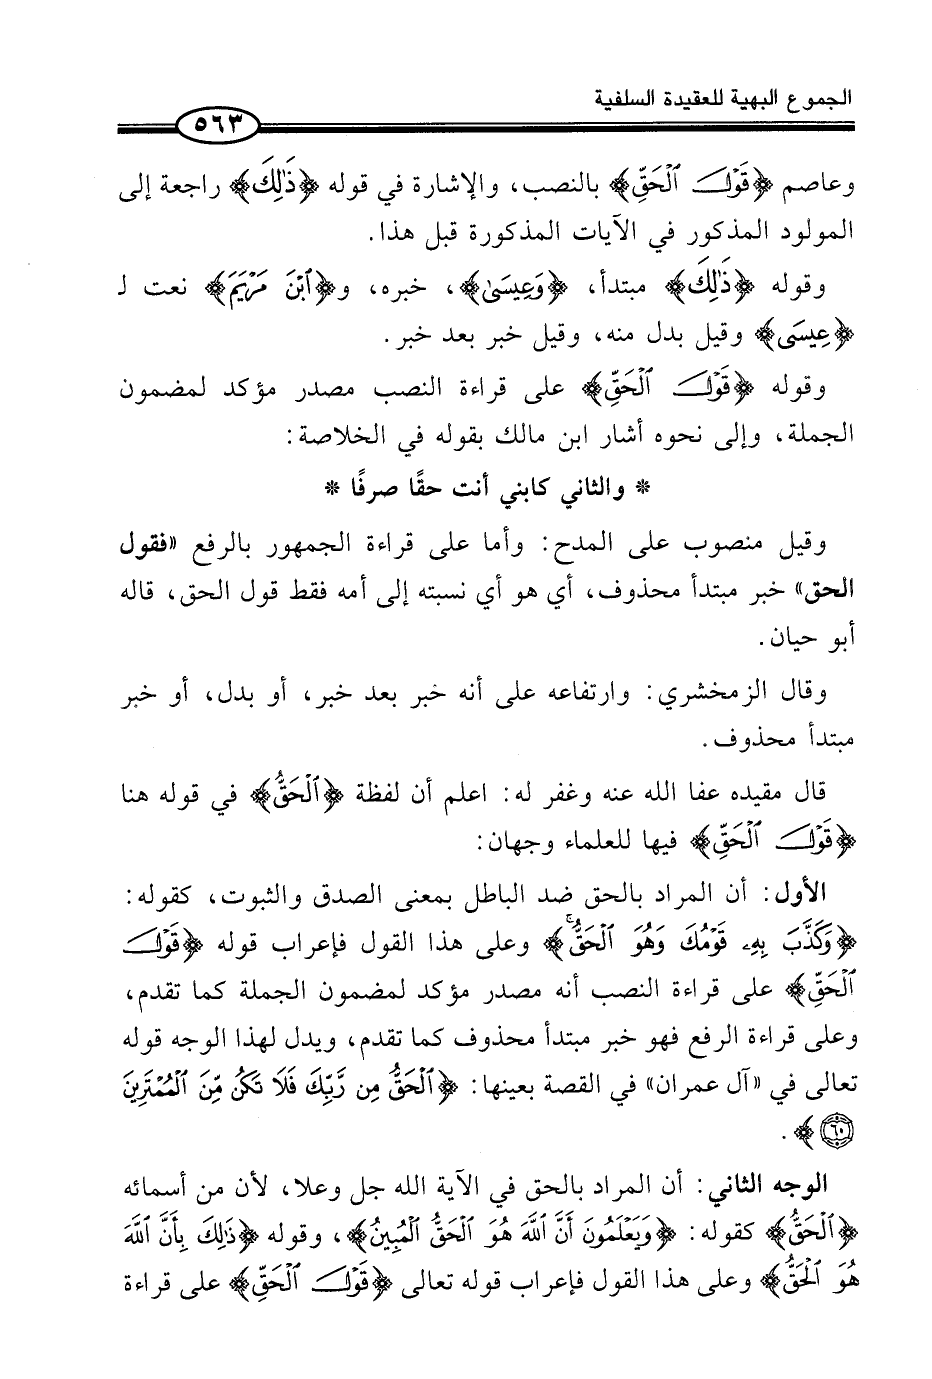 الجموع البهية للعقيدة السلفية
٥٦٣
وعاصم ﴿قَوْلَ ٱلْحَقِّ﴾ بالنصب، والإشارة في قوله ﴿ذَٰلِكَ﴾ راجعة إلى
المولود المذكور في الآيات المذكورة قبل هذا.
وقوله ﴿ذَٰلِكَ﴾ مبتدأ، ﴿وَعِيسَىٰ﴾، خبره، و﴿ٱبْنَ مَرْيَمَ﴾ نعت لـ
﴿عِيسَى﴾ وقيل بدل منه، وقيل خبر بعد خبر.
وقوله ﴿قَوْلَ ٱلْحَقِّ﴾ على قراءة النصب مصدر مؤكد لمضمون
الجملة، وإلى نحوه أشار ابن مالك بقوله في الخلاصة:
* والثاني كابني أنت حقًا صرفًا *
وقيل منصوب على المدح: وأما على قراءة الجمهور بالرفع «فقول
الحق» خبر مبتدأ محذوف، أي هو أي نسبته إلى أمه فقط قول الحق، قاله
أبو حيان.
وقال الزمخشري: وارتفاعه على أنه خبر بعد خبر، أو بدل، أو خبر
مبتدأ محذوف.
قال مقيده عفا الله عنه وغفر له: اعلم أن لفظة ﴿ٱلْحَقُّ﴾ في قوله هنا
﴿قَوْلَ ٱلْحَقِّ﴾ فيها للعلماء وجهان:
الأول: أن المراد بالحق ضد الباطل بمعنى الصدق والثبوت، كقوله:
﴿وَكَذَّبَ بِهِۦ قَوْمُكَ وَهُوَ ٱلْحَقُّۚ﴾ وعلى هذا القول فإعراب قوله ﴿قَوْلَ
ٱلْحَقِّ﴾ على قراءة النصب أنه مصدر مؤكد لمضمون الجملة كما تقدم،
وعلى قراءة الرفع فهو خبر مبتدأ محذوف كما تقدم، ويدل لهذا الوجه قوله
تعالى في «آل عمران» في القصة بعينها: ﴿ٱلْحَقُّ مِن رَّبِّكَ فَلَا تَكُن مِّنَ ٱلْمُمْتَرِينَ
٦٠﴾.
الوجه الثاني: أن المراد بالحق في الآية الله جل وعلا، لأن من أسمائه
﴿ٱلْحَقُّ﴾ كقوله: ﴿وَيَعْلَمُونَ أَنَّ ٱللَّهَ هُوَ ٱلْحَقُّ ٱلْمُبِينُ﴾، وقوله ﴿ذَٰلِكَ بِأَنَّ ٱللَّهَ
هُوَ ٱلْحَقُّ﴾ وعلى هذا القول فإعراب قوله تعالى ﴿قَوْلَ ٱلْحَقِّ﴾ على قراءة